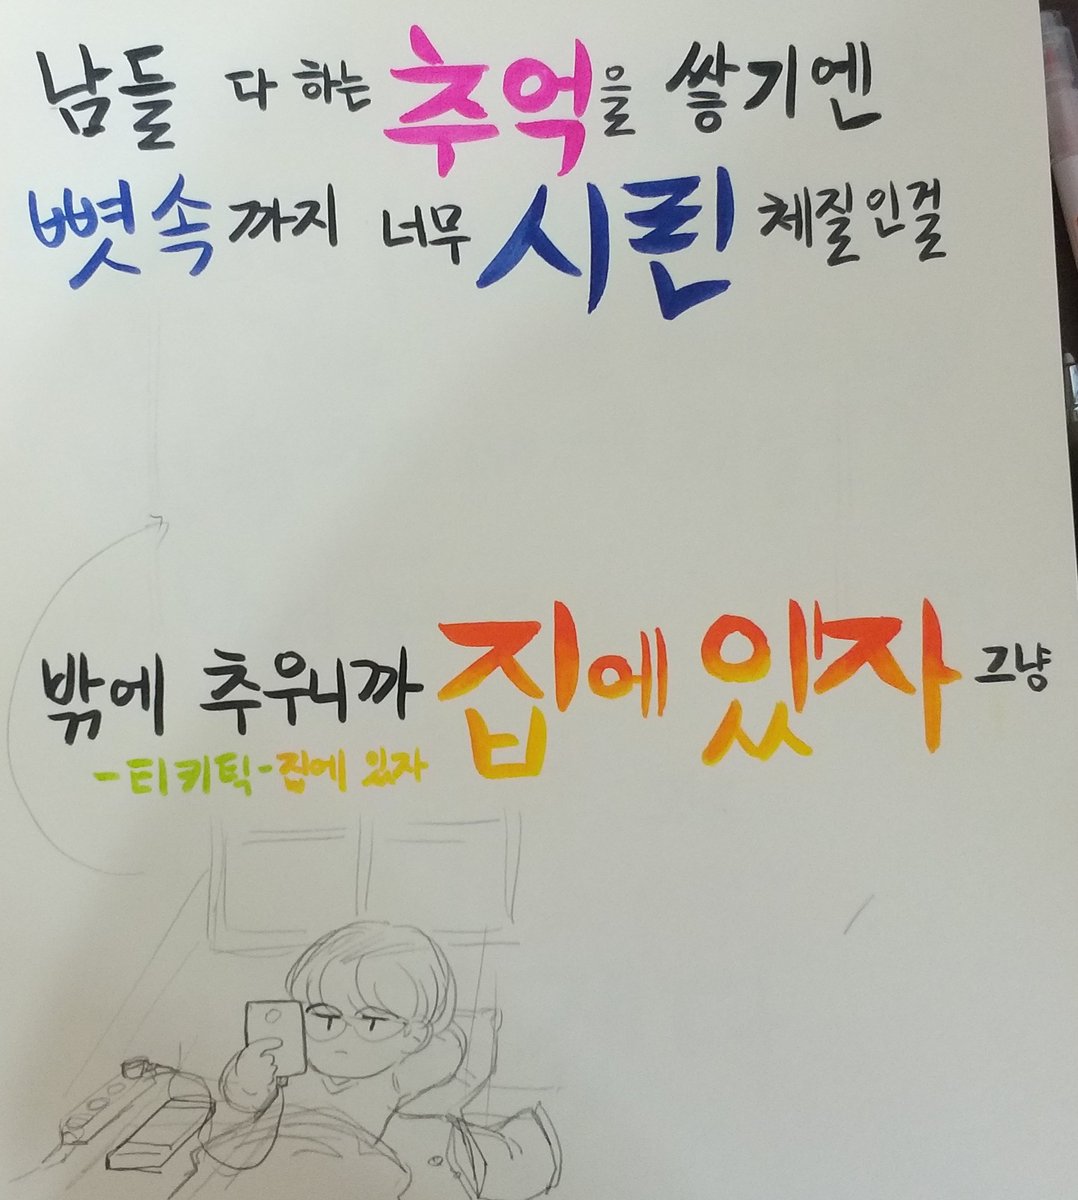 남들 다 하는 추억을 쌓기엔
뼛속까지 너무 시린 체질인걸
밖에 추우니까 집에 있자 그냥
-티키틱-집에 있자